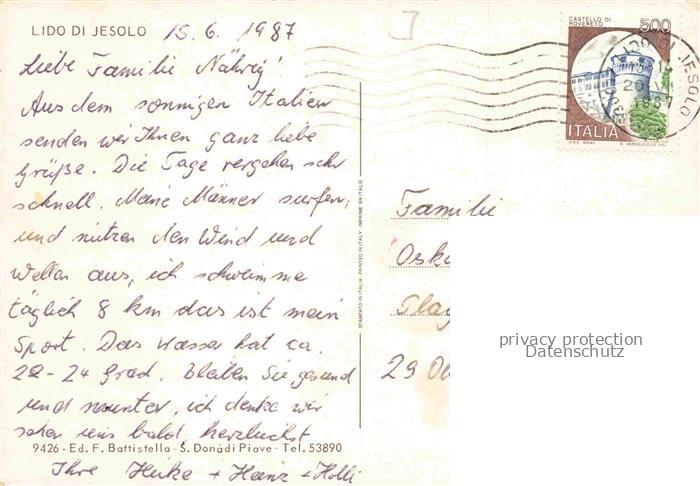 LIDO DI JESOLO 15.6.1987
Liebe Familie Nährig!
Aus dem sonnigen Italien
senden wir Ihnen ganz liebe
Grüße. Die Tage vergehen sehr
schnell. Meine Männer surfen,
und nutzen den Wind und
Wellen aus, ich schwimme
täglich 8 km das ist mein
Sport. Das Wasser hat ca.
22-24 Grad. Bleiben Sie gesund
und munter, ich denke wir
sehen uns bald, herzlichst
9426 - Ed. F. Battistella - S. Donà di Piave - Tel. 53890
Ihre Heike + Heinz + Holli
STAMPATO IN ITALIA PRINTED IN ITALY IMPRIME EN ITALIE
CASTELLO DI
ROVERETO
500
ITALIA
I.P.Z.S. ROMA
LIDO DI JESOLO
1987
Familie
Osk
29 Ol
privacy protection
Datenschutz